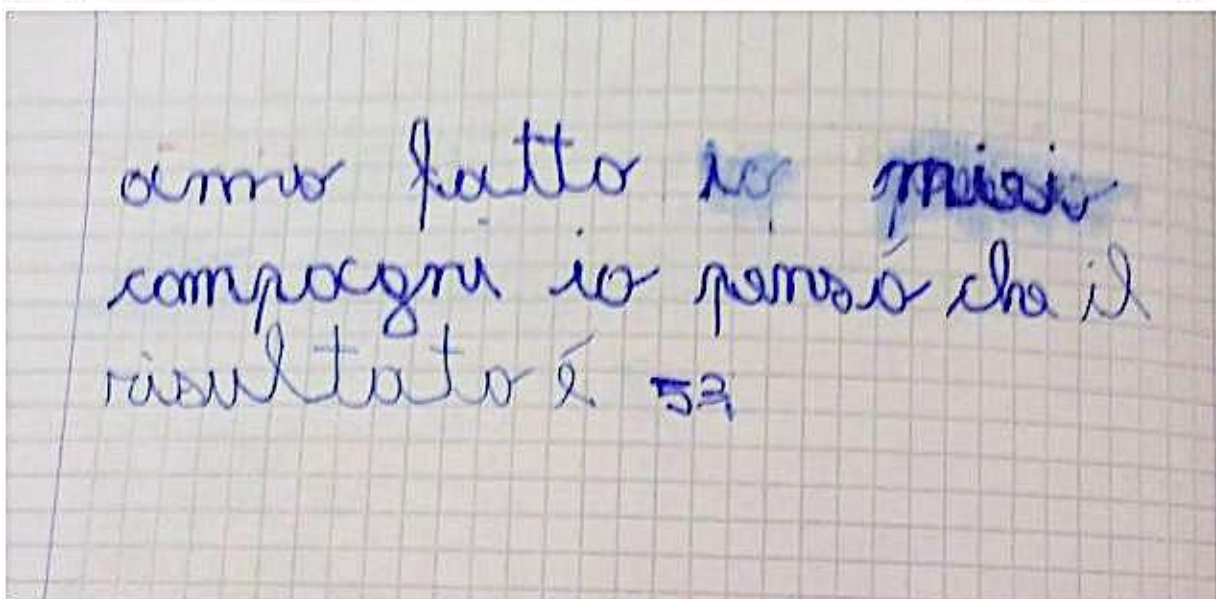 anno fatto io miei
compagni io pensó che il
risultato é 53